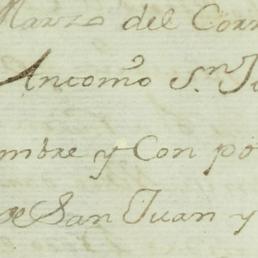 Marzo del Corr
Antonio Sn Ju
mbre y Con po
de San Juan y